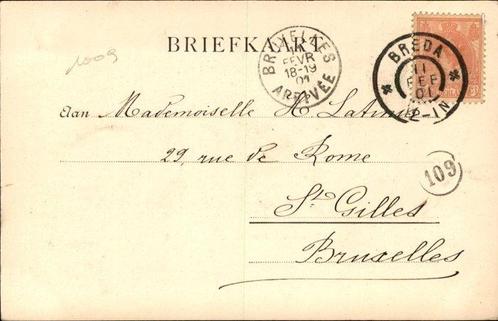 1009
BRIEFKAART
BRUXELLES
FEVR
18-19
01
ARRIVÉE
BREDA
11
FEB
01
12-1N
Aan Mademoiselle H.
29, rue de Rome
109
St Gilles
Bruxelles